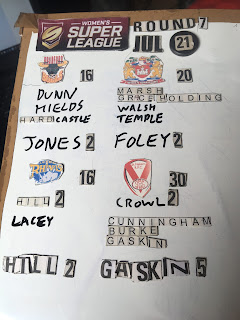 WOMEN'S
SUPER
LEAGUE
ROUND 7
JUL 21
16 20
DUNN
MIELDS
HARDCASTLE
MARSH
GRACE HOLDING
WALSH
TEMPLE
JONES 2 FOLEY 2
16 30
HILL 2
LACEY
CROWL 2
CUNNINGHAM
BURKE
GASKIN
HILL 2 GASKIN 5